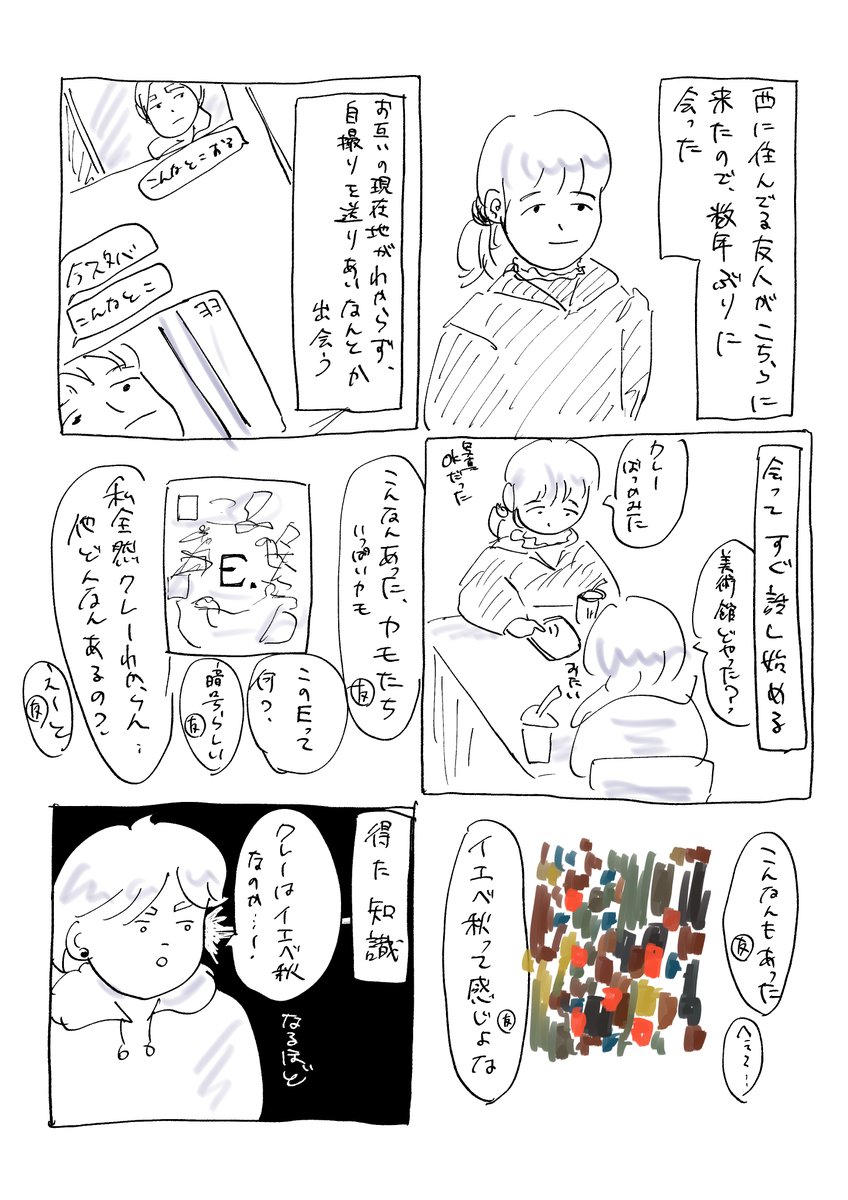 西に住んでる友人がこちらに
来たので、数年ぶりに
会った
お互いの現在地がわからず、
自撮りを送りあいなんとか
出会う
こんなとこおる
今スタバ
こんなとこ
会ってすぐ話し始める
美術館どやった?
クレー
ばっかみた
撮影
OKだった
みたい
こんなんあった、カモたち
いっぱいカモ
友
E.
このEって
何?
暗号らしい
友
私全然クレーわからん…
他どんなんあるの?
えーと
友
こんなんもあった
友
へぇ〜…
イエベ秋って感じよな
友
得た知識
クレーはイエベ秋
なのか…!
なるほど